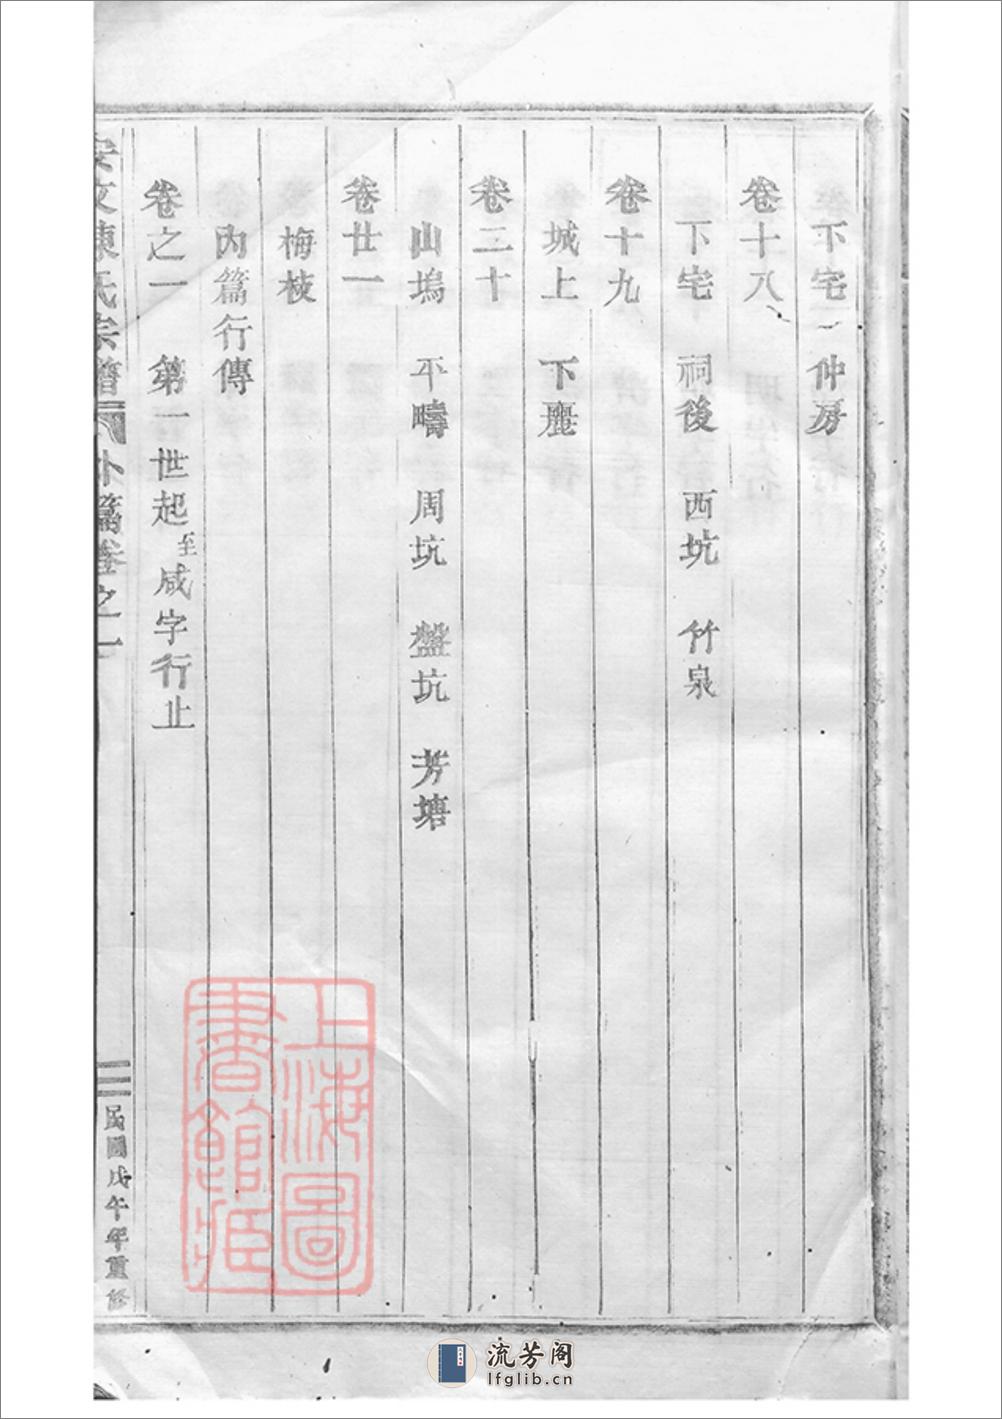 下宅 仲房
卷十八
下宅 祠後 西坑 竹泉
卷十九
城上 下麗
卷二十
山塢 平疇 周坑 盤坑 芳塘
卷廿一
梅枝
內篇行傳
卷之一 第一世起至咸字行止
安文陳氏宗譜 外篇卷之一 二 民國戊午年重修
上海圖書館藏
流芳阁
lfglib.cn